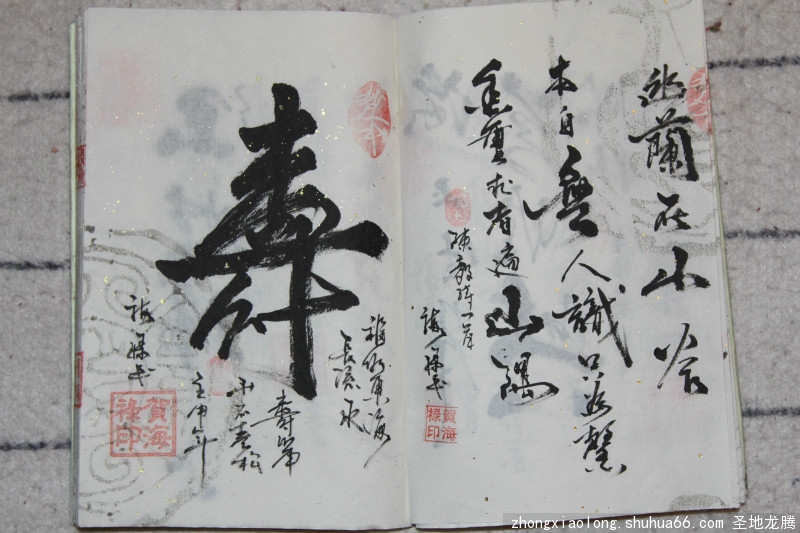 幽蘭在山谷
本自無人識只為馨
香重求者遍山隅
陳毅詩一首
賀海
祿印
壽
福如東海
長流水
壽比南
山不老松
壬申年
賀海
祿印
zhongxiaolong.shuhua66.com 圣地龙腾